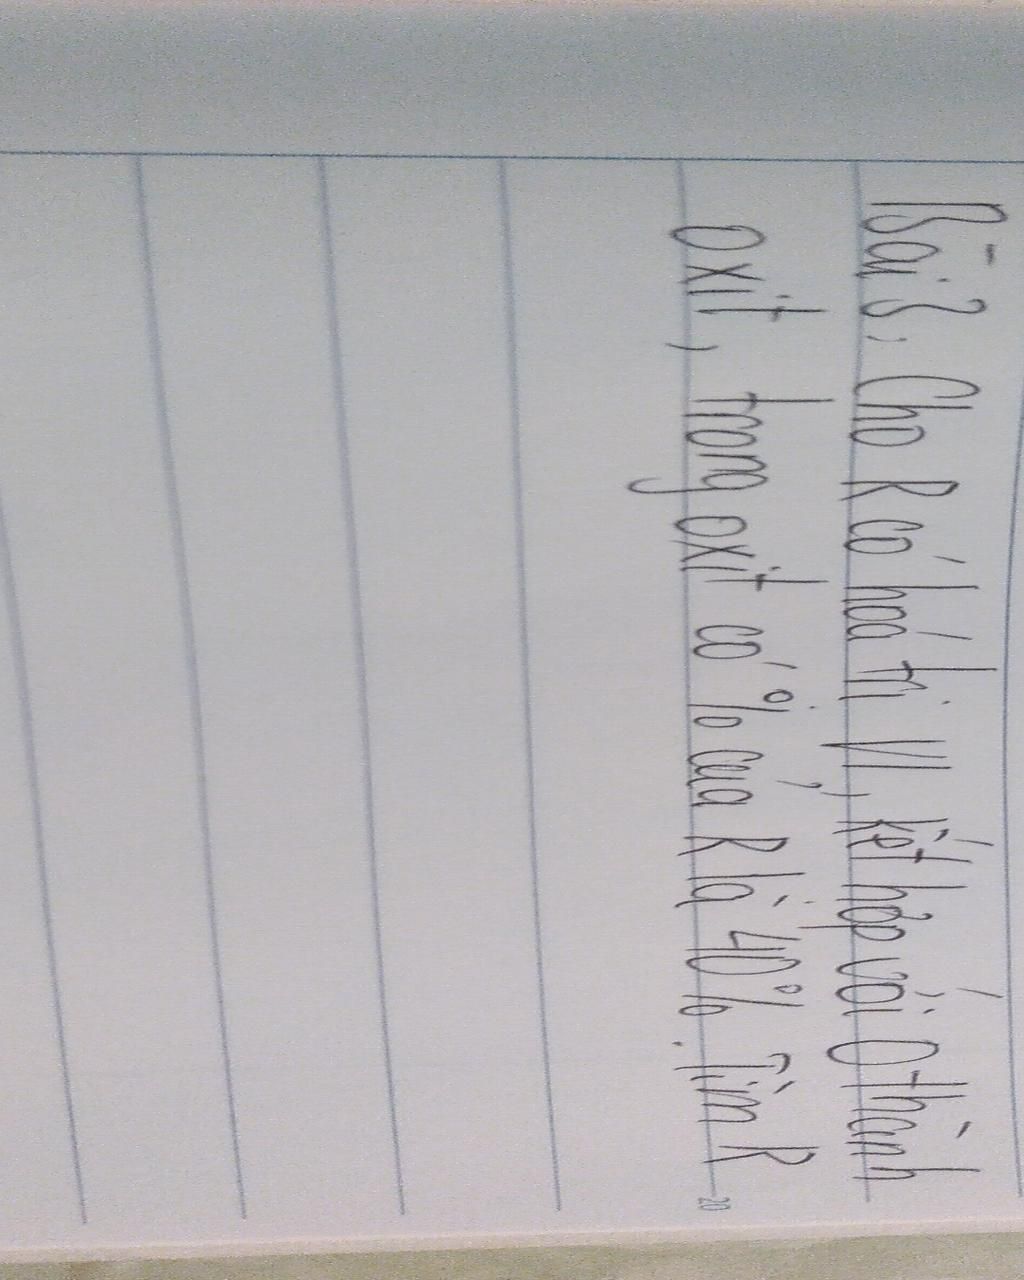 Bài 2, Cho R có hoá trị VI, kết hợp với O thành
oxit, trong oxit có % của R là 40%. Tìm R
20